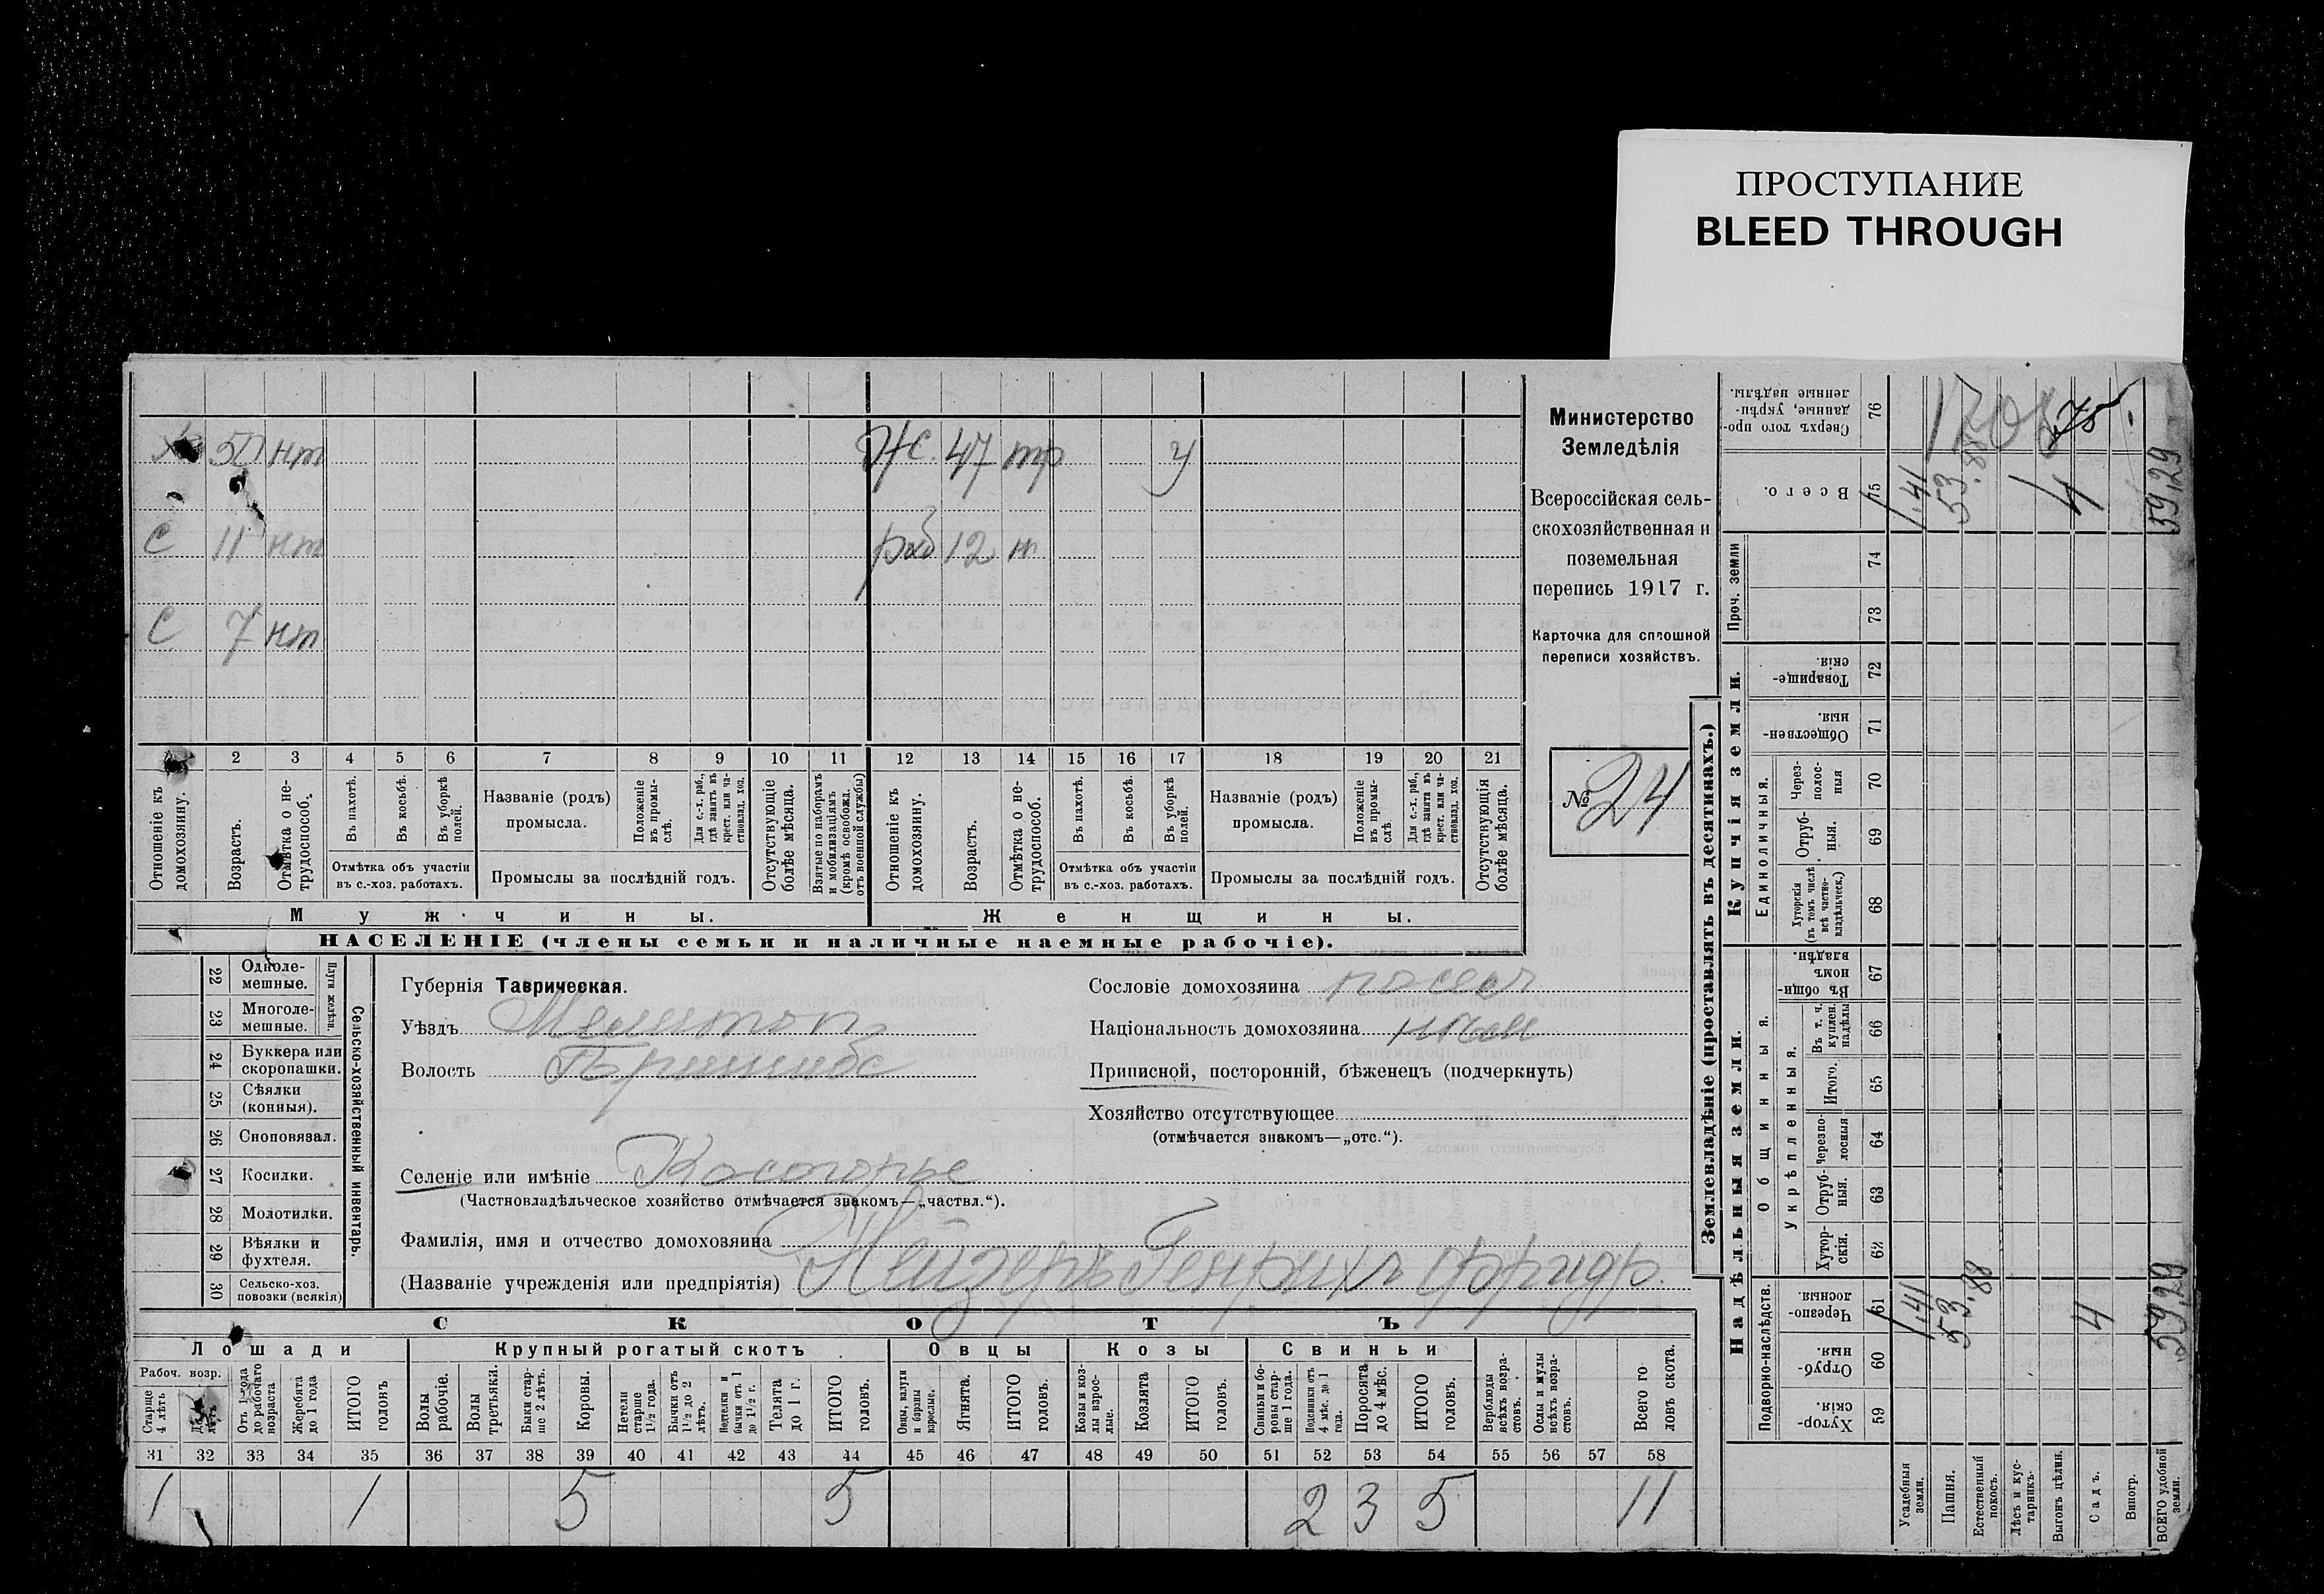 ПРОСТУПАНИЕ
BLEED THROUGH
50 нт Ж. 47 тр у
С 11 нт раб 12 н
С 7 нт
2 3 4 5 6 7 8 9 10 11 12 13 14 15 16 17 18 19 20 21
Отношеніе къ домохозяину.
Возрастъ.
Отмѣтка о не-трудоспособ.
Въ пахотѣ.
Въ косьбѣ.
Въ уборкѣ полей.
Отмѣтка объ участіи
въ с.-хоз. работахъ.
Названіе (родъ)
промысла.
Положеніе въ промы-слѣ.
Для с.-х. раб., гдѣ занятъ въ крест. или ча-стновлад. хоз.
Промыслы за послѣдній годъ.
Отсутствующіе болѣе мѣсяца.
Взятые по наборамъ и мобилизаціямъ (кромѣ освобожд. отъ военной службы)
Отношеніе къ домохозяину.
Возрастъ.
Отмѣтка о не-трудоспособ.
Въ пахотѣ.
Въ косьбѣ.
Въ уборкѣ полей.
Отмѣтка объ участіи
въ с.-хоз. работахъ.
Названіе (родъ)
промысла.
Положеніе въ промы-слѣ.
Для с.-х. раб., гдѣ занята въ крест. или ча-стновлад. хоз.
Промыслы за послѣдній годъ.
Отсутствующія болѣе мѣсяца.
Мужчины. Женщины.
НАСЕЛЕНІЕ (члены семьи и наличные наемные рабочіе).
Министерство
Земледѣлія
Всероссійская сель-
скохозяйственная и
поземельная
перепись 1917 г.
Карточка для сплошной
переписи хозяйствъ.
№ 24
22 Одноле-мешные.
23 Многоле-мешные.
Плуги желѣзн.
24 Буккера или скоропашки.
25 Сѣялки (конныя).
26 Сноповязал.
27 Косилки.
28 Молотилки.
29 Вѣялки и фухтеля.
30 Сельско-хоз. повозки (всякія)
Сельско-хозяйственный инвентарь.
Губернія Таврическая.
Уѣздъ Мелитоп
Волость Пришибс
Селеніе или имѣніе Косогорье
(Частновладѣльческое хозяйство отмѣчается знакомъ—„частвл.“).
Фамилія, имя и отчество домохозяина
(Названіе учрежденія или предпріятія) Гейзеръ Генрихъ Фридр.
Сословіе домохозяина посел
Національность домохозяина нѣм
Приписной, посторонній, бѣженецъ (подчеркнуть)
Хозяйство отсутствующее
(отмѣчается знакомъ—„отс.“).
СКОТЪ
Лошади Крупный рогатый скотъ Овцы Козы Свиньи
Рабоч. возр.
Старше 4 лѣтъ
Отъ 1 года до рабочаго возраста
Жеребята до 1 года
ИТОГО головъ
Волы рабочіе.
Волы третьяки.
Быки стар-ше 2 лѣтъ.
Коровы.
Нетели старше 1½ года.
Бычки отъ 1½ до 2 лѣтъ.
бычки отъ 1 до 1½ г.
Телята до 1 г.
ИТОГО головъ.
Овцы, валухи и бараны взрослые.
Ягнята.
ИТОГО головъ.
Козы и коз-лы взрос-лые.
Козлята
ИТОГО головъ.
Свиньи и бо-ровы стар-ше 1 года.
Подсвинки отъ 4 мѣс. до 1 года.
Поросята до 4 мѣс.
ИТОГО головъ.
Верблюды всѣхъ возра-стовъ.
Ослы и мулы всѣхъ возра-стовъ.
Всего го-ловъ скота.
31 32 33 34 35 36 37 38 39 40 41 42 43 44 45 46 47 48 49 50 51 52 53 54 55 56 57 58
1 1 5 5 2 3 5 11
Землевладѣніе (проставлять въ десятинахъ.)
Надѣльныя земли.
Купчія земли.
Проч. земли
Подворно-наслѣдств.
Общинныя.
Укрѣпленныя.
Единоличныя.
Хутор-скія. 59
Отруб-ныя. 60
Черезпо-лосныя. 61
Хутор-скія. 62
Отруб-ныя. 63
Черезпо-лосныя 64
Итого. 65
Въ т. ч. куплен. надѣлы 66
Въ общи-номъ владѣн. 67
Хуторскія (въ томъ числѣ всѣ частно-владѣльческ.) 68
Отруб-ныя. 69
Через-полос-ныя 70
Обществен-ныя. 71
Товарище-скія. 72
73
74
Всего. 75
Сверхъ того про-данные, укрѣп-ленные надѣлы. 76
Усадебныя земли. 1,41 1,41
Пашня. 53,88 53,88
Естественный покосъ.
Лѣсъ и кус-тарникъ.
Выгонъ цѣлин.
Садъ. 4 4
Виногр.
ВСЕГО удобной земли. 59,29 59,29